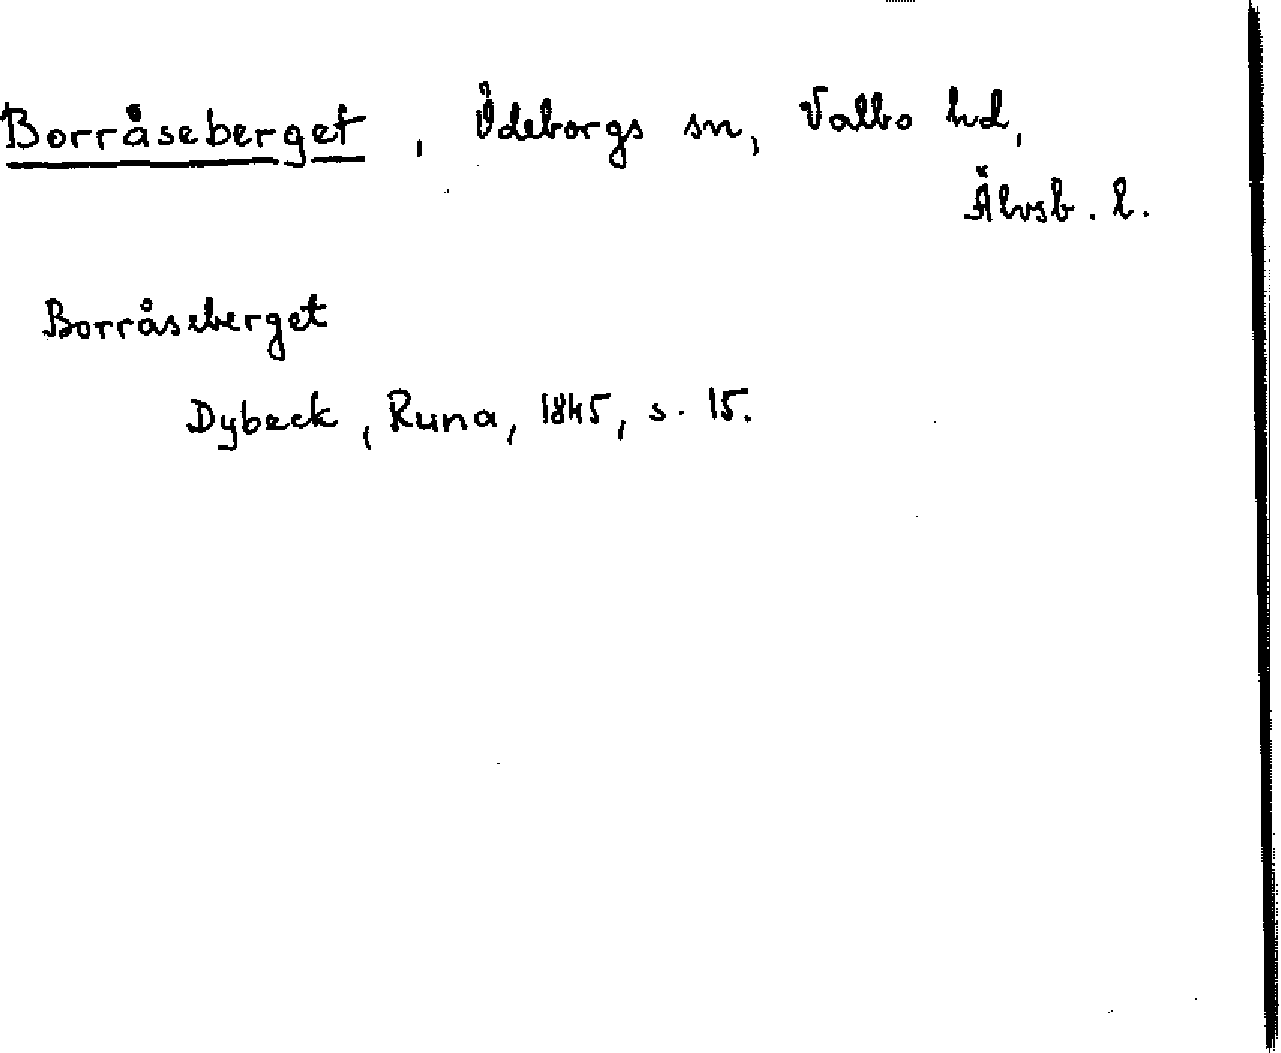 Borråseberget, Ödeborgs sn, Valbo hd,
Älvsb. l.
Borråseberget
Dybeck, Runa, 1845, s. 15.